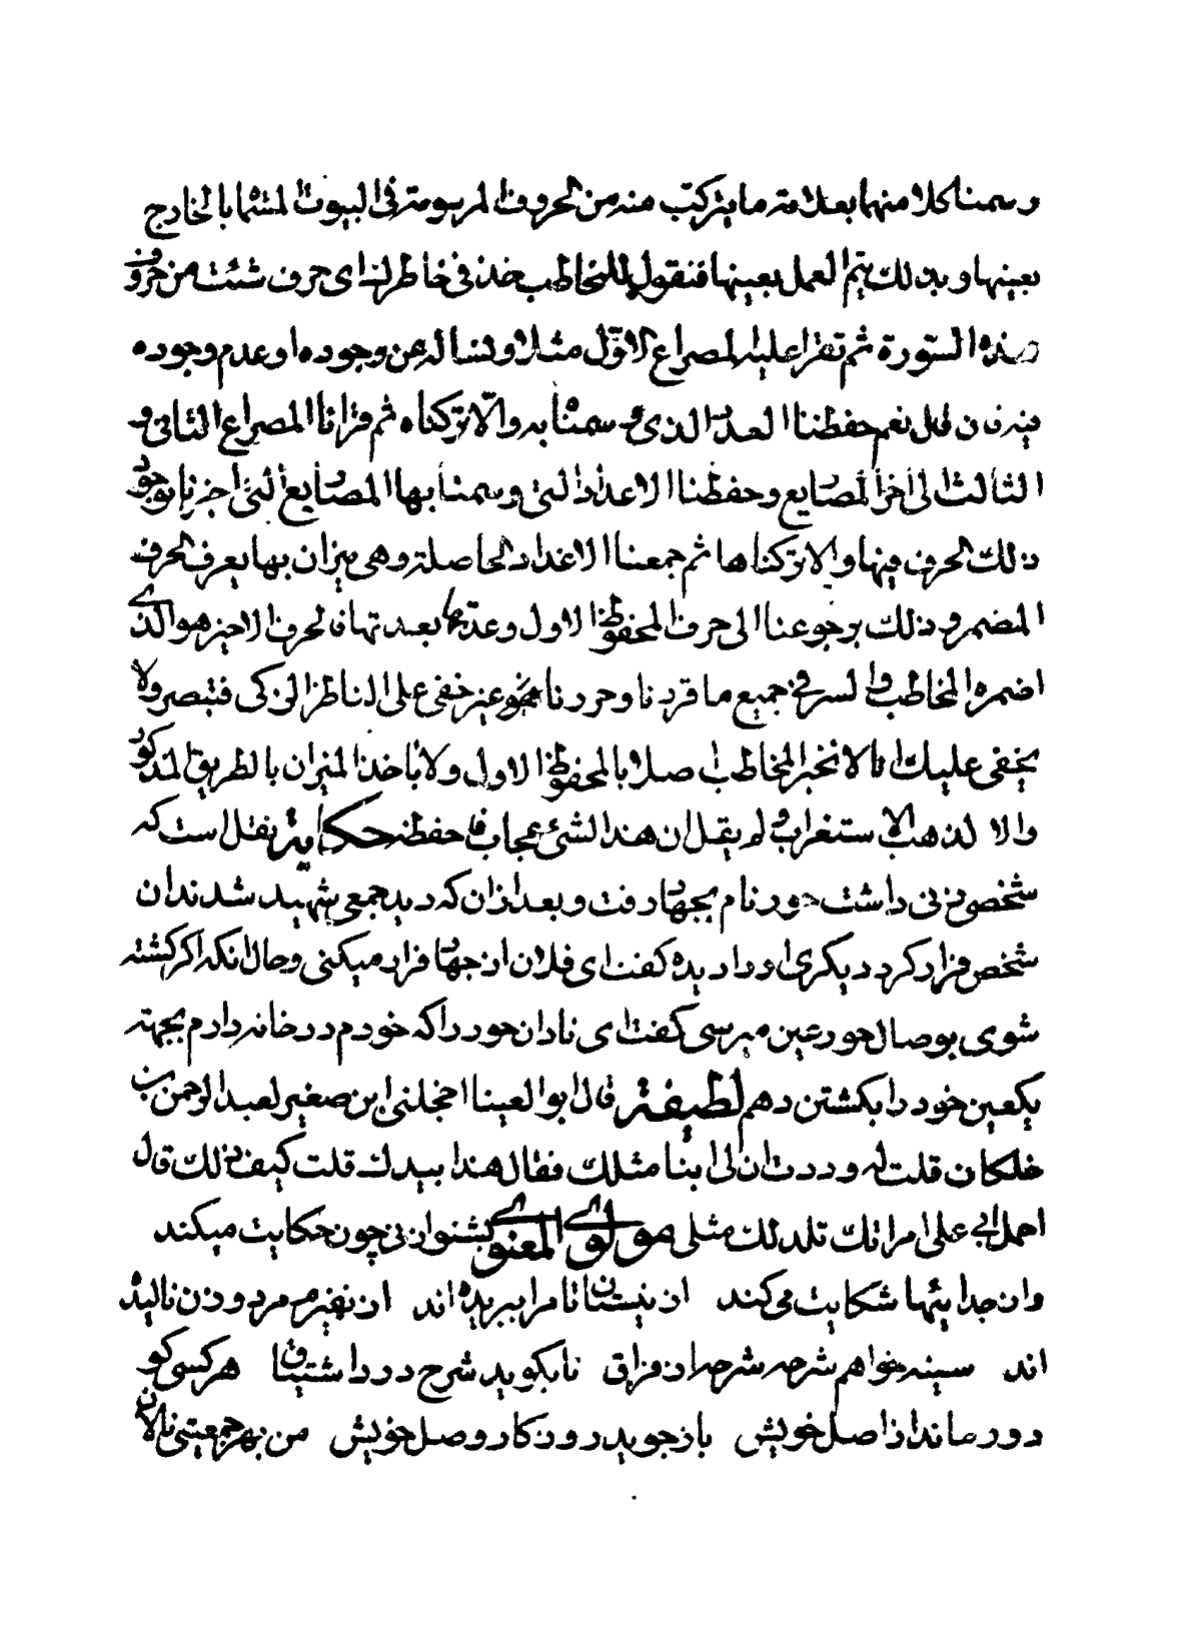 وسمنا كلا منها بعلامة ما يتركب منه من الحروف المرسومة في البيوت المتثما بالخارج
بعينها وبذلك يتم العمل بعينها فنقول للمخاطب خذ في خاطرك اي حرف شئت من حروف
هذه السورة ثم تقرا عليه المصراع الاول مثلا وتساله عن وجوده او عدم وجوده
فيه فان قال نعم حفظنا العدد الذي وسمنا به والا تركناه ثم قرانا المصراع الثاني و
الثالث الى اخر المصاريع وحفظنا الاعداد التي وسمنا بها المصاريع التي اخبرنا بوجود
ذلك الحرف فيها والا تركناها ثم جمعنا الاعداد الحاصلة وهي ميزان بها يعرف الحرف
المضمر وذلك برجوعنا الى حرف المحفوظ الاول وعدها بعدتها فالحرف الاخير هو الذي
اضمره المخاطب والسر في جميع ما قررنا وحررنا نحو غير خفي على الناظر الزكي فتبصر ولا
يخفى عليك انا لا نخبر المخاطب اصلا بالمحفوظ الاول ولا باخذ الميزان بالطريق المذكور
والا لذهب الاستغراب ولم يقل ان هذا الشئ عجاب فاحفظه حكاية نقل است كه
شخصی زنی داشت حور نام بجهاد رفت و بعد ازان كه دید جمعی شهید شدند ان
شخص فرار كرد دیكری او را دیده كفت ای فلان از جهاد فرار میكنی وحال انكه اكر كشته
شوی بوصال حور عین میرسی كفت ای نادان حور را كه خودم در خانه دارم بجهته
یكعین خود را بكشتن دهم لطيفة قال ابو العينا اخجلني ابن صغير لعبد الرحمن بن
خلكان قلت له وددت ان لي ابنا مثلك فقال هذا بيدك قلت كيف ذلك قال
احمل ابي على امراتك تلد لك مثلي مولوي المعنوي بشنو از نی چون حكایت میكند
وز جدائیها شكایت می كند از نیستان تا مرا ببریده اند از نفیرم مرد و زن نالیده
اند سینه خواهم شرحه شرحه از فراق تا بكوید شرح درد اشتیاق هر كسی كو
دور ماند از اصل خویش باز جوید روزكار وصل خویش من بهر جمعیتی نالان